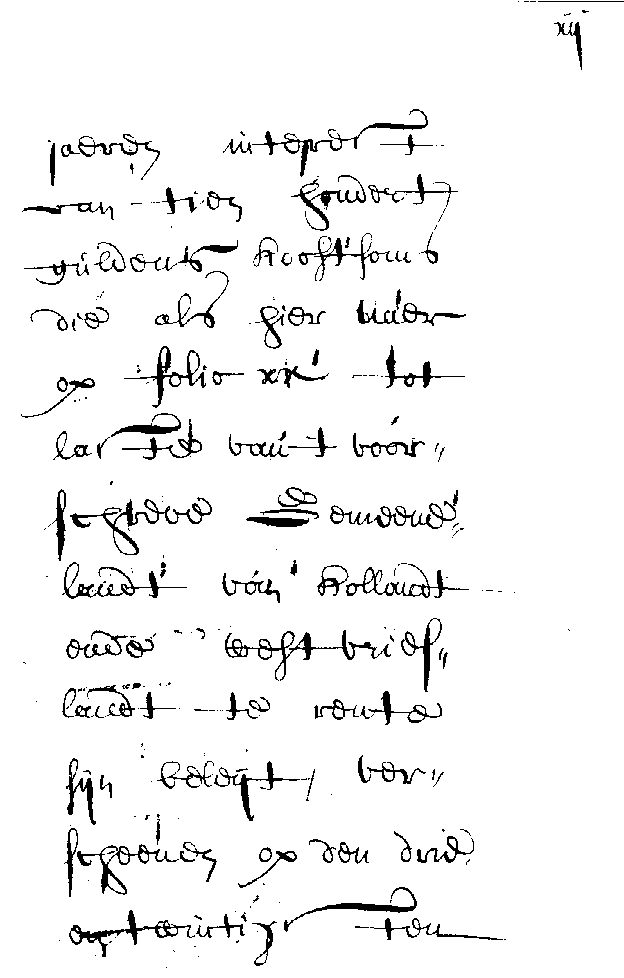 xiij
jaeren interest
van tien hondert
guldens hooftsoms
die als hier naer
op folio xx tot
laste vant voor„
schreve gemeene„
landt van Hollandt
ende westvries„
landt te rente
sijn beleijt, ver„
scheenen op den drie
en twintigsten